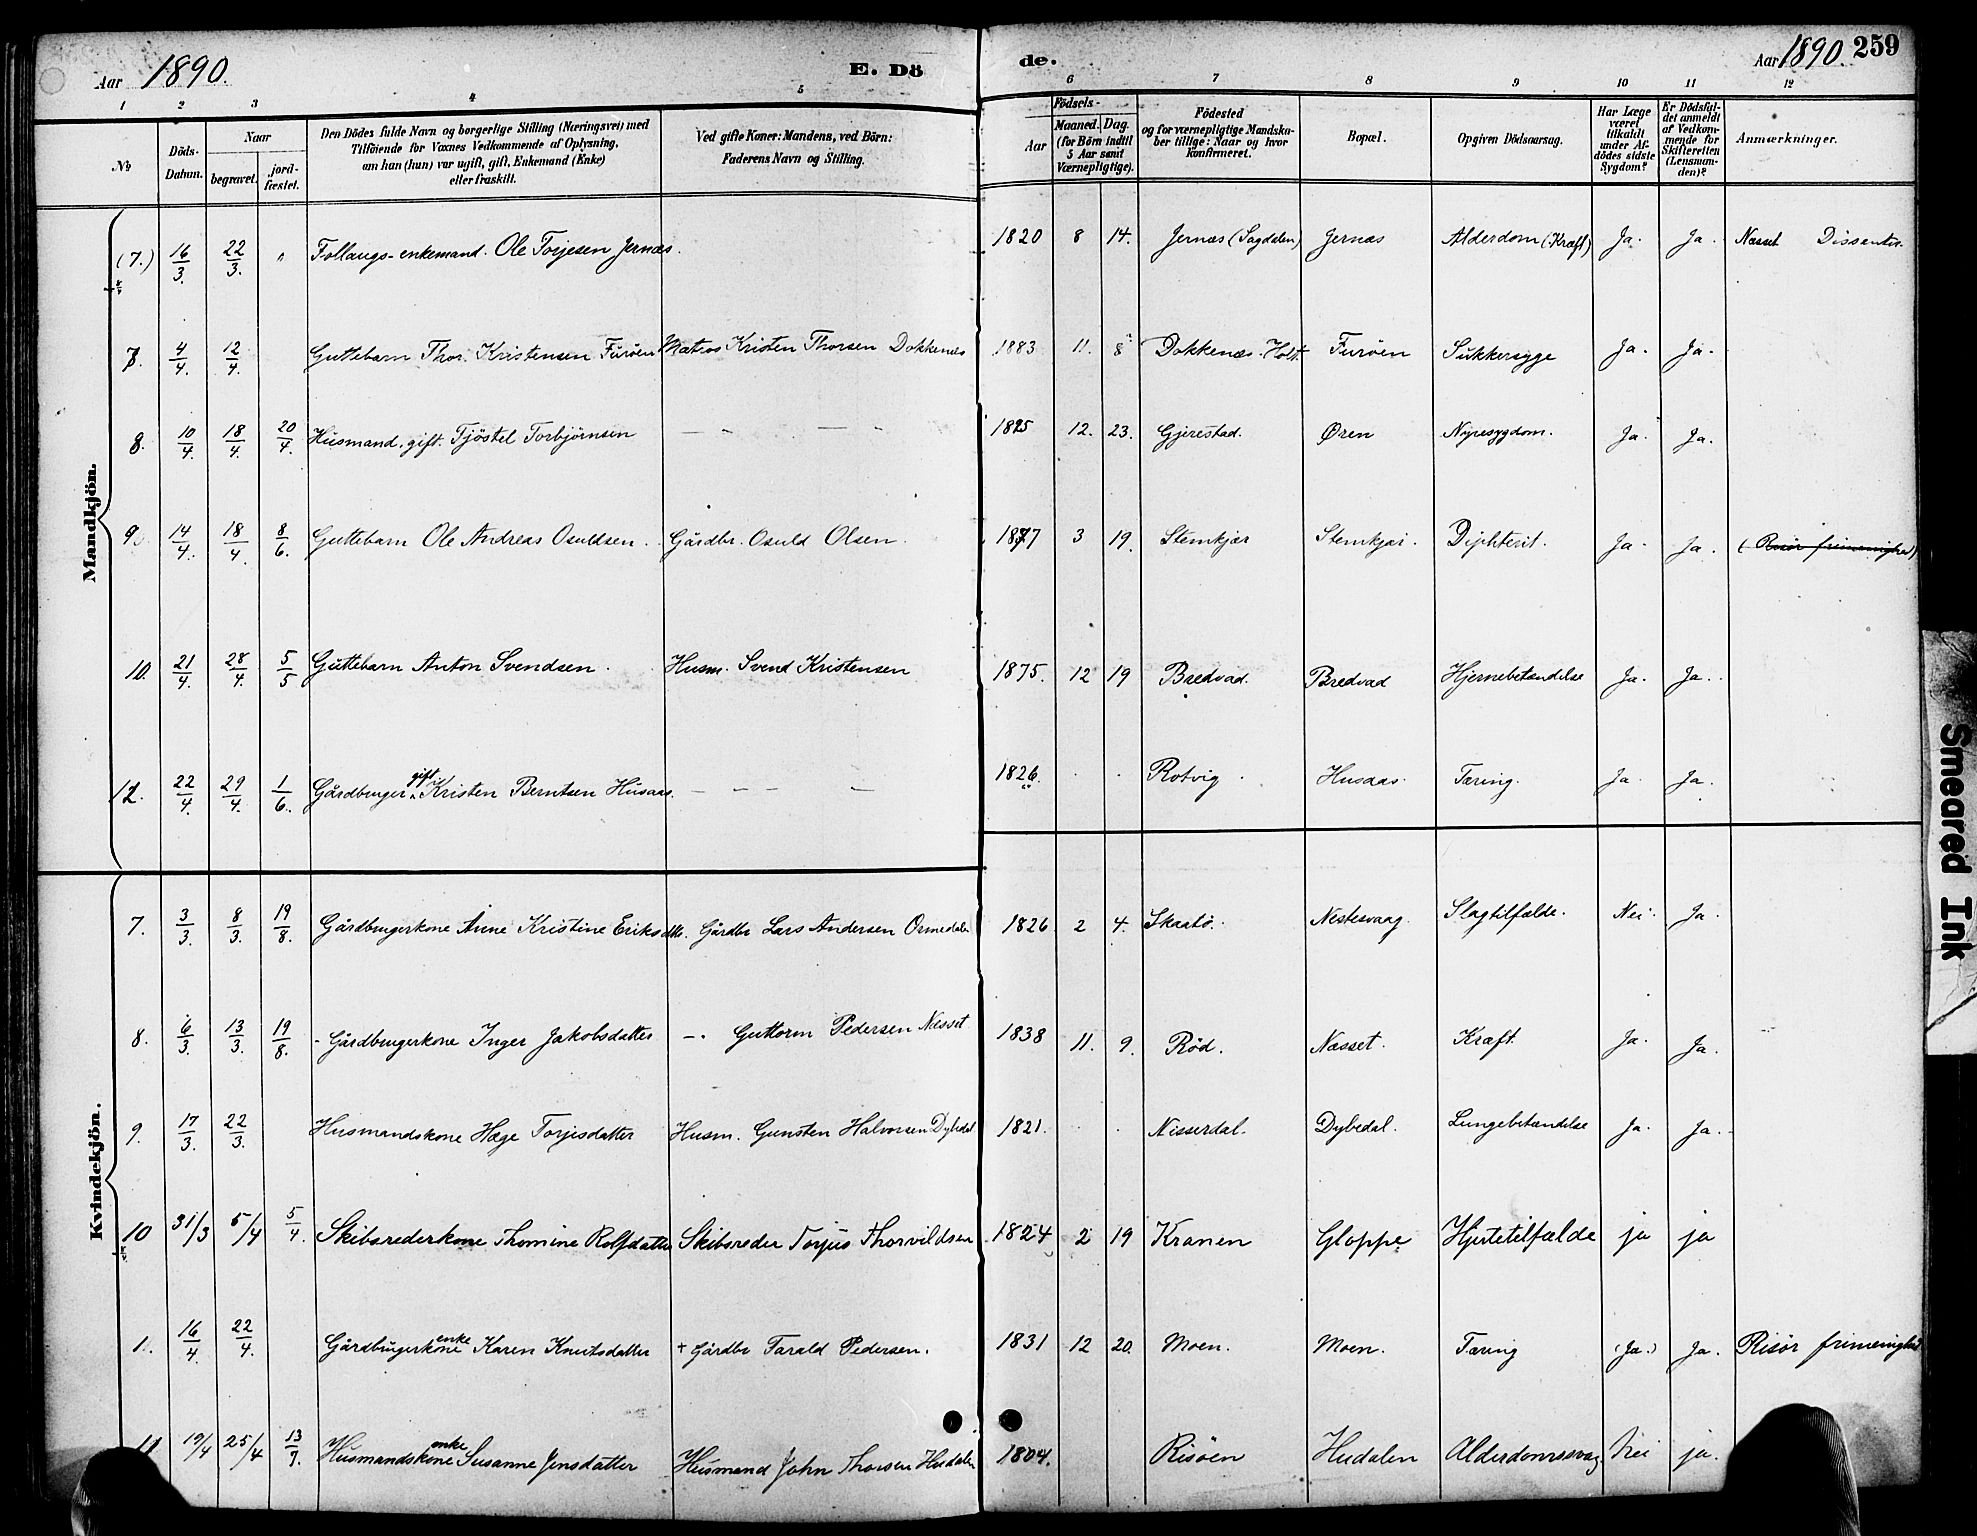 Aar 1890. E. Dö de. Aar 1890. 259
1 2 3 4 5 6 7 8 9 10 11 12
No
Döds-Datum.
Naar
begravet.
jord-fæstet.
Den Dödes fulde Navn og borgerlige Stilling (Næringsvei) med
Tilföiende for Voxnes Vedkommende af Oplysning,
om han (hun) var ugift, gift, Enkemand (Enke)
eller fraskilt.
Ved gifte Koner: Mandens, ved Börn:
Faderens Navn og Stilling.
Födsels-
Aar
Maaned. Dag.
(for Børn indtil
5 Aar samt
Værnepligtige).
Födested
og for værnepligtige Mandska-
ber tillige: Naar og hvor
konfirmeret.
Bopæl.
Opgiven Dödsaarsag.
Har Læge
været
tilkaldt
under Af-
dødes sidste
Sygdom?
Er Dödsfal-
det anmeldt
af Vedkom-
mende for
Skifteretten
(Lensman-
den)?
Anmærkninger.
Mandkjön.
(7.) 16/3 22/3 " Follaugs-enkemand. Ole Torjesen Jernæs. 1820 8 14. Jernæs (Sagdalen) Jernæs Alderdom (Kræft) Ja. Ja. Næsset Dissenter.
7. 4/4. 12/4. Guttebarn Thor Kristensen Furöen Matros Kristen Thorsen Dokkenæs 1883 11. 8 Dokkenæs-Holt. Furöen Sukkersyge Ja. Ja.
8. 10/4. 18/4. 20/4. Husmand, gift. Tjöstel Torbjørnsen — — — — 1825 12. 23. Gjerestad. Øren Nyresygdom. Ja. Ja.
9. 14/4. 18/4. 8/6. Guttebarn Ole Andreas Osuldsen. Gårdbr. Osuld Olsen. 1877 3 19. Stemkjær Stemkjær. Diphterit. Ja. Ja. (Risør frimenighed)
10. 21/4. 28/4. 5/5 Guttebarn Anton Svendsen. Husm. Svend Kristensen 1875. 12 19 Bredvad. Bredvad Hjernebetændelse Ja. Ja.
12. 22/4. 29/4. 1/6. Gårdbruger gift Kristen Berntsen Husaas. — — — — 1826. . . Rotvig. Husaas. Tæring. Ja. Ja.
Kvindekjön.
7. 3/3. 8/3. 19/8. Gårdbrugerkone Anne Kristine Eriksdtr. Gårdbr Lars Andersen Ormedalen 1826 2 4. Skaatø. Nestesvaag. Slagtilfælde. Nei. Ja.
8. 6/3. 13/3. 19/8. - Gårdbrugerkone Inger Jakobsdatter —. Guttorm Pedersen Næsset 1838 11. 9. Rød. Næsset. Kræft. Ja. Ja.
9. 17/3. 22/3. Husmandskone Hæge Torjisdatter Husm. Gunsten Halvorsen Dybedal 1821. . . Nisserdal. Dybedal. Lungebetændelse Ja. Ja.
10 31/3 5/4 5/4. Skibsrederkone Thomine Rolfdatter Skibsreder Torjus Thorvildsen 1824 2 19 Kranen Gloppe Hjertetilfælde ja ja
1. 16/4. 22/4. Gårdbrugerkone enke Karen Knutsdatter + Gårdbr Tarald Pedersen. 1831 12 20. Moen. Moen. Tæring (Ja.) Ja. Risör frimenighed
11 19/4 25/4 13/7. Husmandskone enke Susanne Jensdatter Husmand John Thorsen Hudalen 1804. Risöen Hudalen Alderdomssvag Nei ja.
Smeared Ink